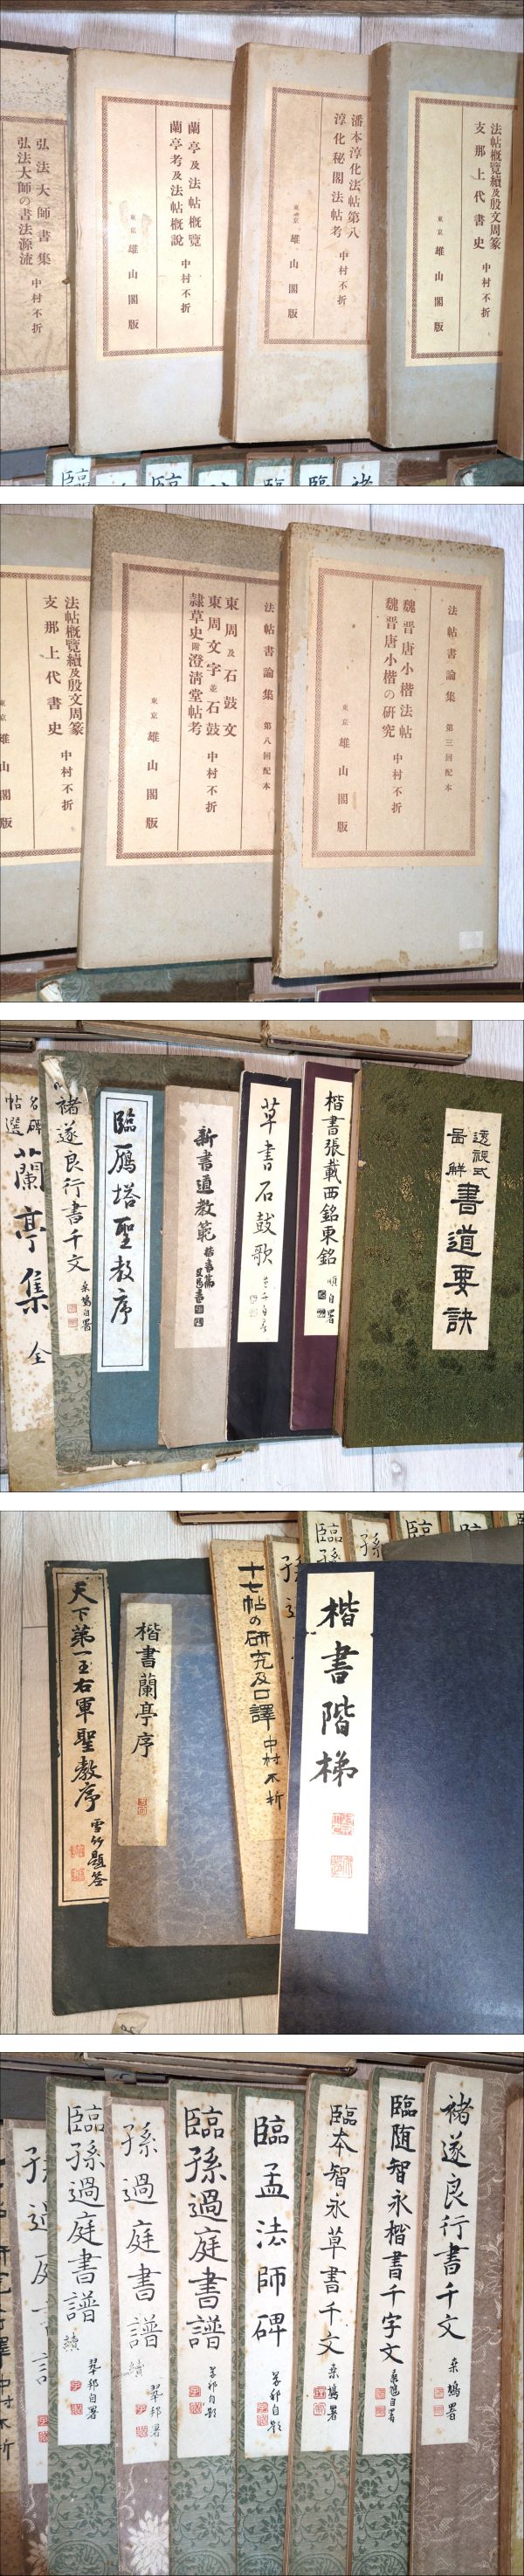 弘法大師書集
弘法大師の書法源流
中村不折
蘭亭及法帖概覽
蘭亭考及法帖概說
中村不折
東京 雄山閣版
潘本淳化法帖第八
淳化秘閣法帖考
中村不折
東京 雄山閣版
法帖概覽續及殷文周篆
支那上代書史
中村不折
東京 雄山閣版
臨
臨
臨
臨
褚
法帖概覽續及殷文周篆
支那上代書史
中村不折
東京 雄山閣版
法帖書論集 第八回配本
東周及石鼓文
東周文字並石鼓
隷草史附澄清堂帖考
中村不折
東京 雄山閣版
法帖書論集 第三回配本
魏晋唐小楷法帖
魏晋唐小楷の研究
中村不折
東京 雄山閣版
名碑
帖選
蘭亭集 全
褚遂良行書千文
桒鳩自署
臨鴈塔聖教序
新書道教範
楷書篇
草書石鼓歌
楷書張載西銘東銘
順自署
透視式
圖解
書道要訣
天下第一王右軍聖教序
雪竹題签
楷書蘭亭序
十七帖の研究及口譯
中村不折
臨孫
孫
臨
楷書階梯
臨孫過庭書譜
續
翠邨自署
孫過庭書譜
續
翠邨署
臨孫過庭書譜
翠邨自題
臨孟法師碑
翠邨自題
臨本智永草書千文
桒鳩署
臨随智永楷書千字文
桒鳩自署
褚遂良行書千文
桒鳩署